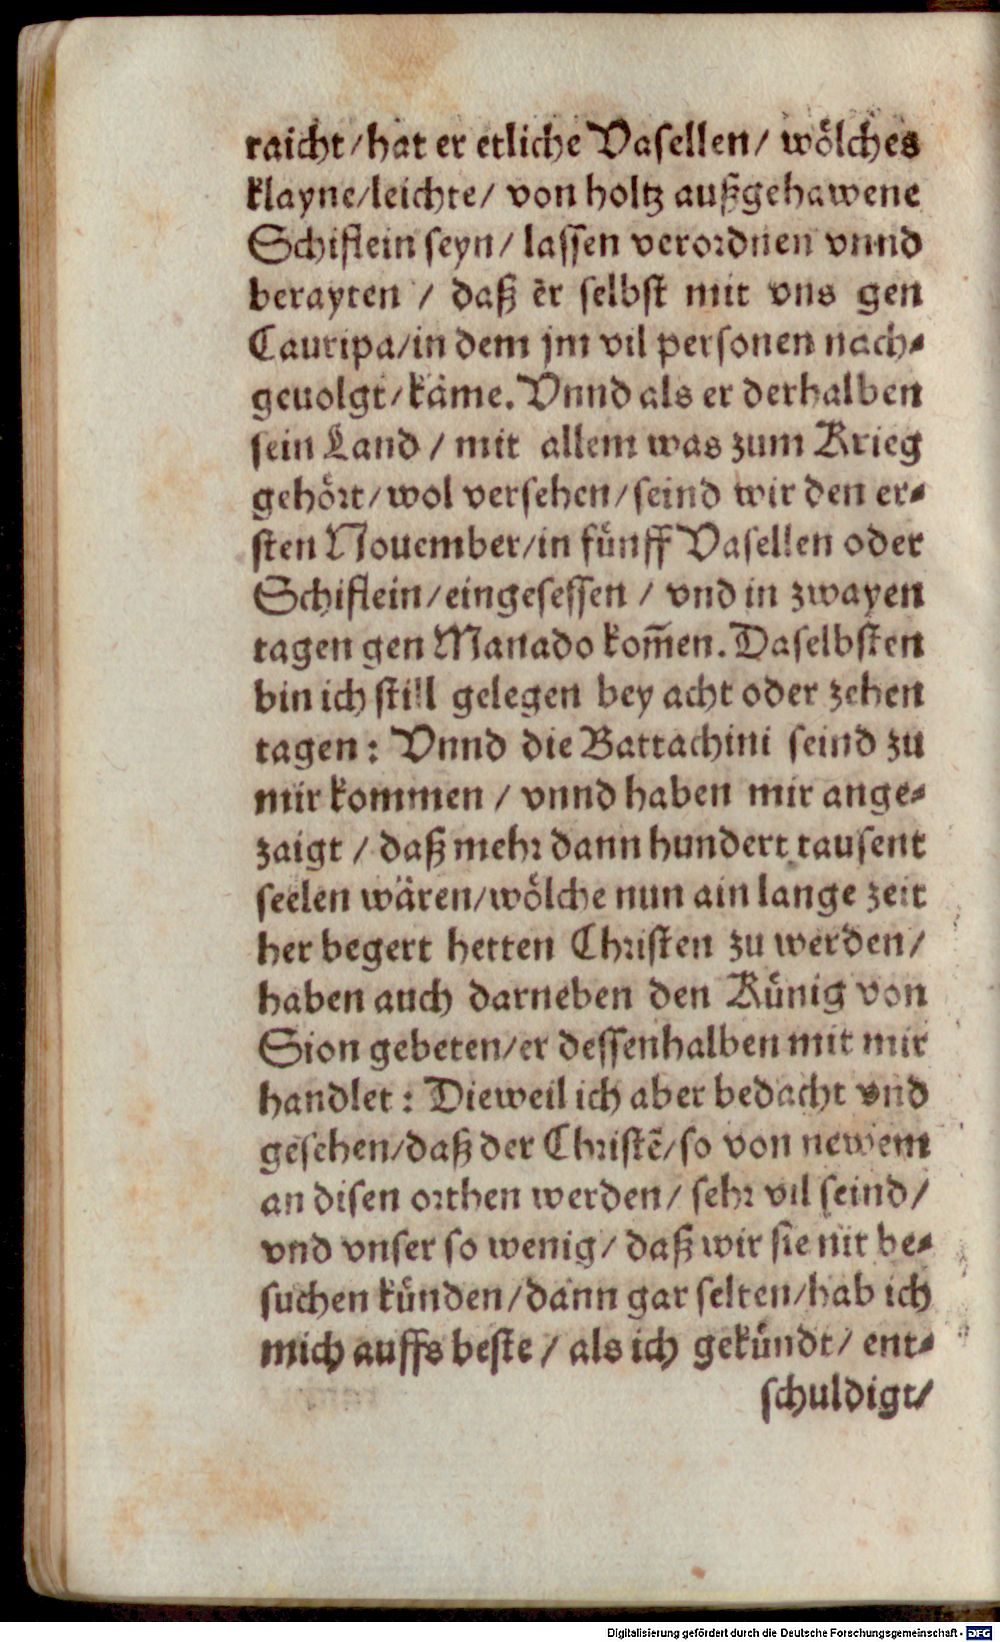 raicht/hat er etliche Vasellen/ wölches
klayne/leichte/ von holtz außgehawene
Schiflein seyn/ lassen verordnen vnnd
berayten / daß er selbst mit vns gen
Cauripa/in dem jm vil personen nach⸗
geuolgt/käme. Vnnd als er derhalben
sein Land / mit allem was zum Krieg
gehört/wol versehen/seind wir den er⸗
sten Nouember/in fünff Vasellen oder
Schiflein/eingesessen / vnd in zwayen
tagen gen Manado kom̃en. Daselbsten
bin ich still gelegen bey acht oder zehen
tagen: Vnnd die Battachini seind zu
mir kommen / vnnd haben mir ange⸗
zaigt / daß mehr dann hundert tausent
seelen wären/wölche nun ain lange zeit
her begert hetten Christen zu werden/
haben auch darneben den Künig von
Sion gebeten/er dessenhalben mit mir
handlet: Dieweil ich aber bedacht vnd
gesehen/daß der Christẽ/so von newem
an disen orthen werden/ sehr vil seind/
vnd vnser so wenig/ daß wir sie nit be⸗
suchen künden/dann gar selten/hab ich
mich auffs beste / als ich gekündt/ ent⸗
schuldigt/
Digitalisierung gefördert durch die Deutsche Forschungsgemeinschaft - DFG